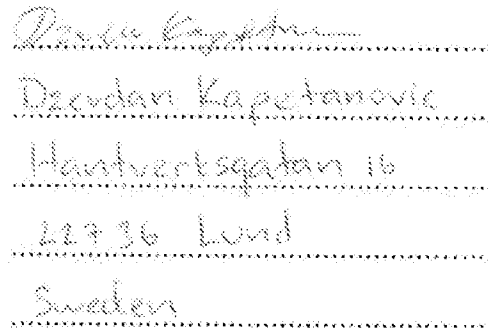 Dzevdan Kapetanovic
Hantverksgatan 16
22736 Lund
Sweden